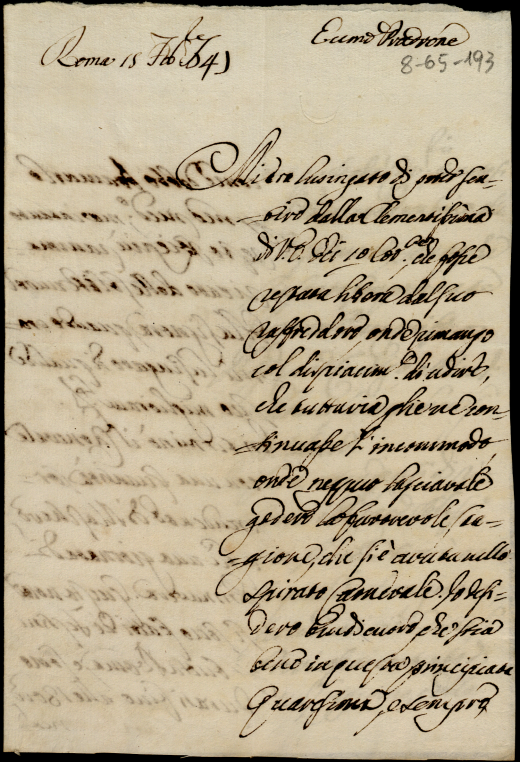 Roma 15 Feb. 1741
Eccmo Padrone
8-65-193
Mi ero lusingato di poter sen-
tire dalla Clementissima
di V. E. dei 10 Cor.te, che fosse
restata libera dal suo
raffreddore, onde rimango
col dispiacim.to di udire,
che tuttavia gliene con-
tinuasse l'incommodo,
onde neppur lasciavale
godere la favorevole sta-
gione, che si è avuta nello
spirato Carnevale. Io desi-
dero ben di cuore, che stia
bene in questa principiata
Quaresima, e sempre